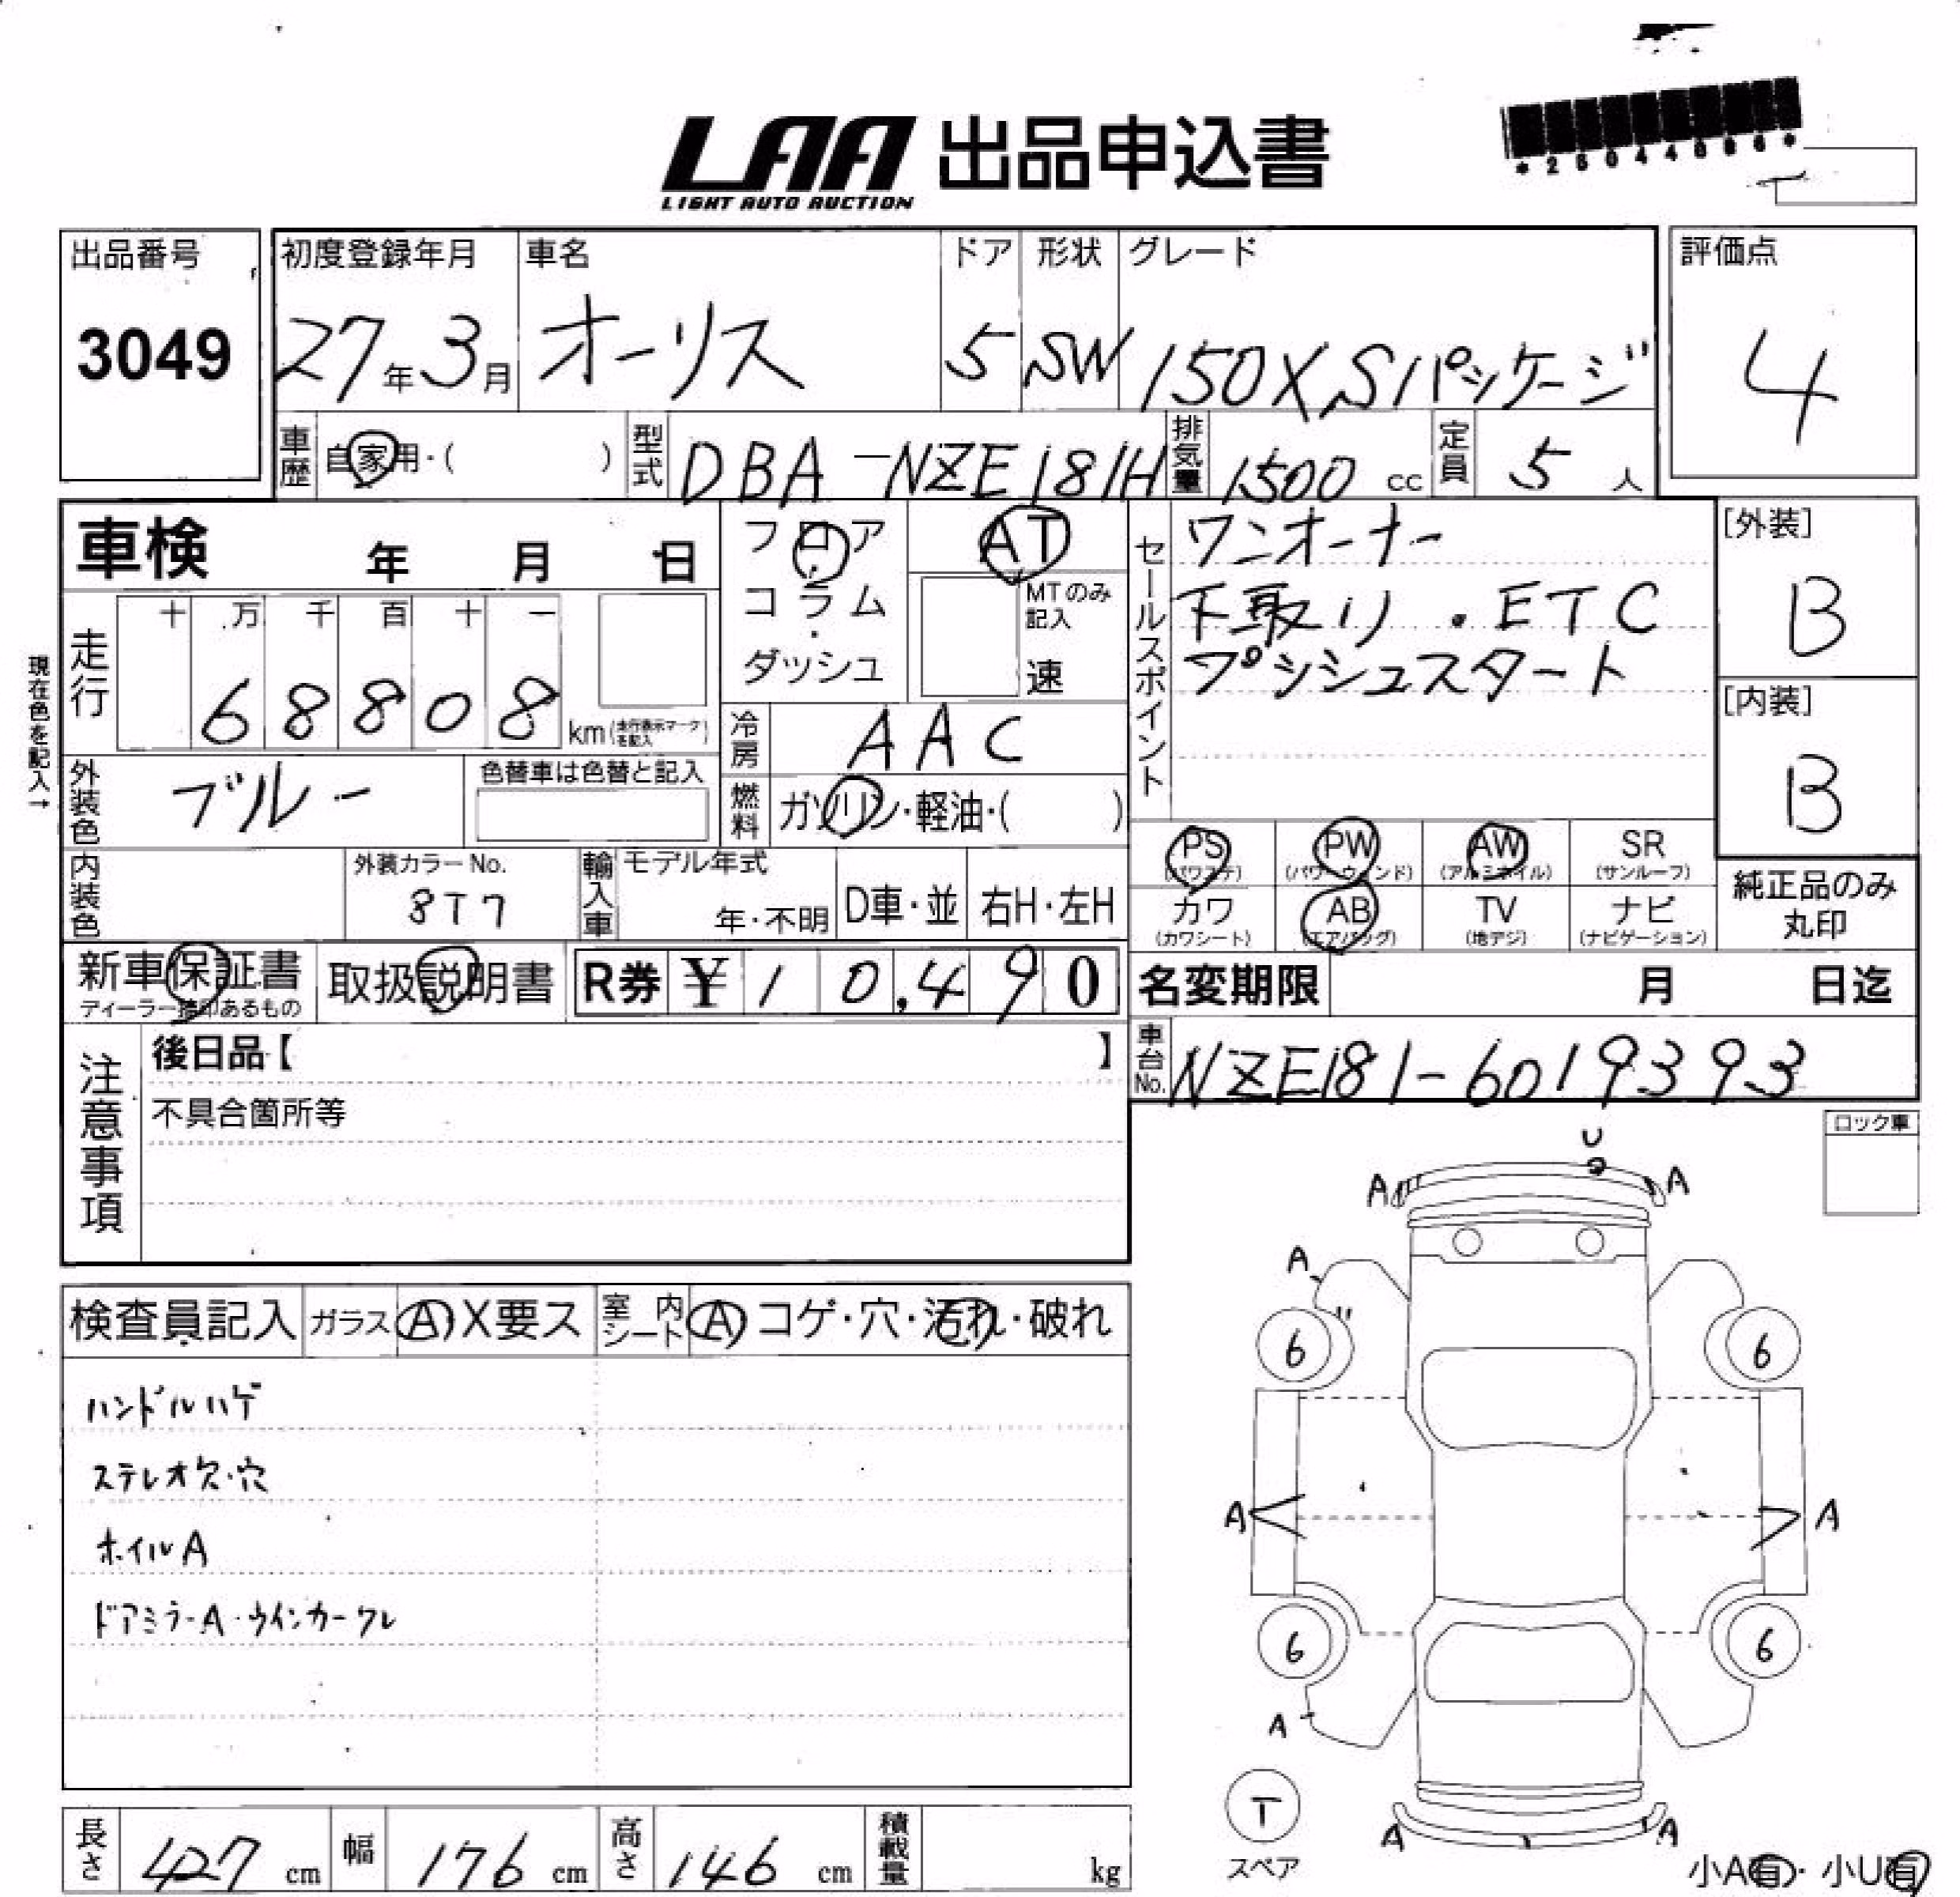 LAA 出品申込書
LIGHT AUTO AUCTION
出品番号
3049
初度登録年月
27年3月
車名
オーリス
ドア
5
形状
SW
グレード
150X Sパッケージ
評価点
4
車歴 自家用・( )
型式 DBA-NZE181H
排気量 1500 cc
定員 5 人
車検 年 月 日
フロア
・
コラム
・
ダッシュ
AT
MTのみ
記入
速
セールスポイント
ワンオーナー
下取り ・ETC
プッシュスタート
[外装]
B
[内装]
B
現在色を記入→
走行
十 万 千 百 十 一
6 8 8 0 8
km(走行表示マークを記入)
冷房 AAC
外装色 ブルー
色替車は色替と記入
燃料 ガソリン・軽油・( )
PS
(パワステ)
PW
(パワーウィンド)
AW
(アルミホイル)
SR
(サンルーフ)
カワ
(カワシート)
AB
(エアバッグ)
TV
(地デジ)
ナビ
(ナビゲーション)
純正品のみ
丸印
内装色
外装カラーNo.
8T7
輸入車
モデル年式
年・不明
D車・並
右H・左H
新車保証書
ディーラー捺印あるもの
取扱説明書
R券 ¥ 10,490
名変期限 月 日迄
車台No. NZE181-6019393
注意事項
後日品【 】
不具合箇所等
ロック車
U
A A
A
6 6
A A
6 6
A
A A
T
スペア
小A有・小U有
検査員記入
ガラス A X要ス
室内シート A コゲ・穴・汚れ・破れ
ハンドルハゲ
ステレオ欠・穴
ホイルA
ドアミラーA・ウインカークレ
長さ 427 cm
幅 176 cm
高さ 146 cm
積載量 kg